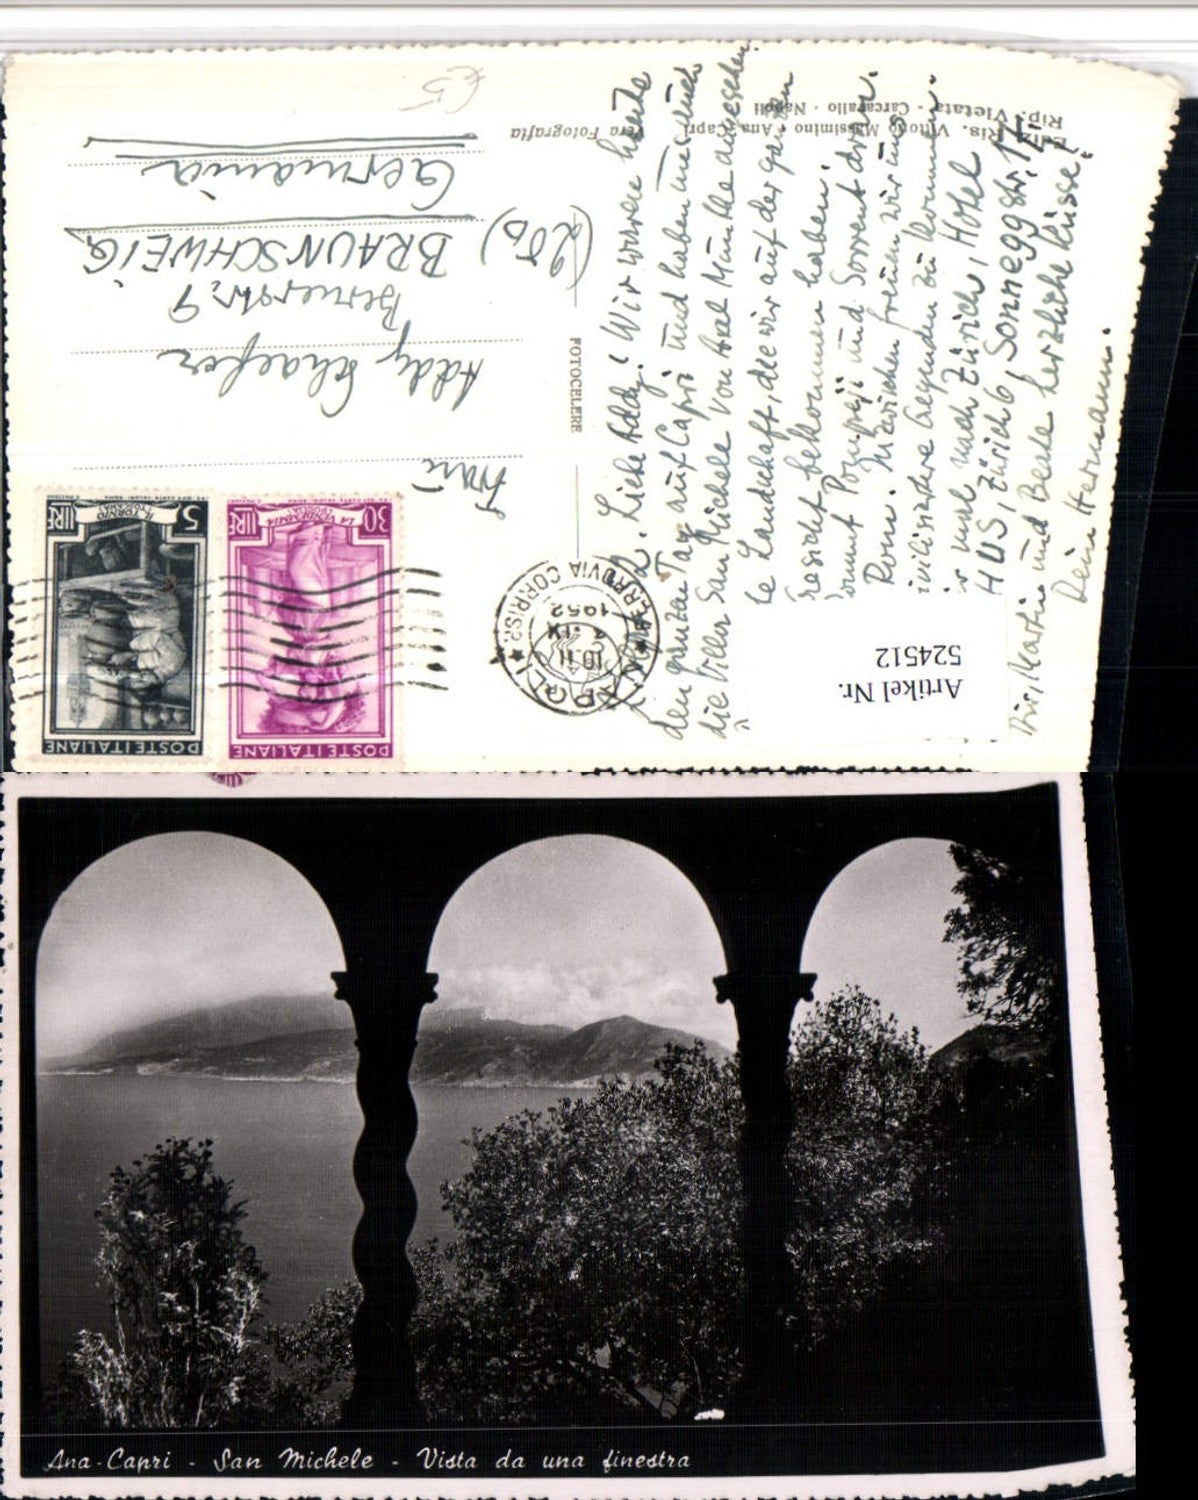 Ediz. Ris. Vittorio Massimino - Ana-Capri
Rip. Vietata - Carcavallo - Napoli
Vera Fotografia
FOTOCELERE
Liebe Addy! Wir waren heute
den ganzen Tag auf Capri und haben uns auch
die Villa San Michele von Axel Munthe angesehen
Landschaft, die wir auf der ganzen
bekommen haben.
kommt Pompeji und Sorrent dran.
Rom. Inzwischen freuen wir uns
zivilisiertere Gegenden zu kommen.
mal nach Zürich, Hotel
HUS, Zürich 6, Sonneggstr. 17.
Dir, Martin und Beate herzliche Küsse!
Dein Hermann.
Frau
Addy Schaefer
Bernerstr. 9
(20b) BRAUNSCHWEIG
Germania
€5
POSTE ITALIANE
LIRE 5
IL TORNIO
POSTE ITALIANE
30 LIRE
LA VENDEMMIA
NAPOLI
FERROVIA CORRISP.
10.II
1952
Artikel Nr.
524512
Ana-Capri - San Michele - Vista da una finestra